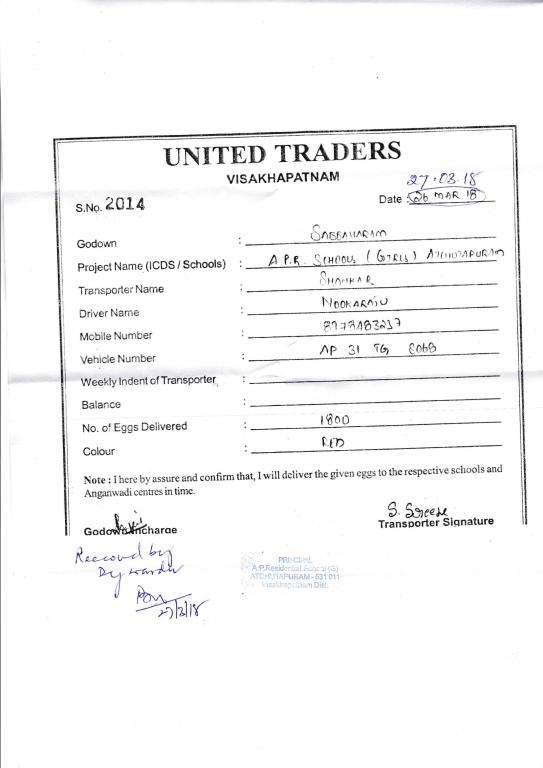 UNITED TRADERS
VISAKHAPATNAM
27.03.18
S.No. 2014
Date : 26 MAR 18
Godown : SABBAVARAM
Project Name (ICDS / Schools) : A.P.R. SCHOOLS (GIRLS) ATCHUTAPURAM
Transporter Name : SHANKAR
Driver Name : NOOKARAJU
Mobile Number :
Vehicle Number : AP 31 TG 8068
Weekly Indent of Transporter :
Balance :
No. of Eggs Delivered : 1800
Colour : RED
Note : I here by assure and confirm that, I will deliver the given eggs to the respective schools and
Anganwadi centres in time.
Godown Incharge
S. Sreenu
Transporter Signature
Received by
Dy warden
27/3/18
PRINCIPAL
A.P.Residential School (G)
ATCHUTAPURAM - 531 011
Visakhapatnam Dist.